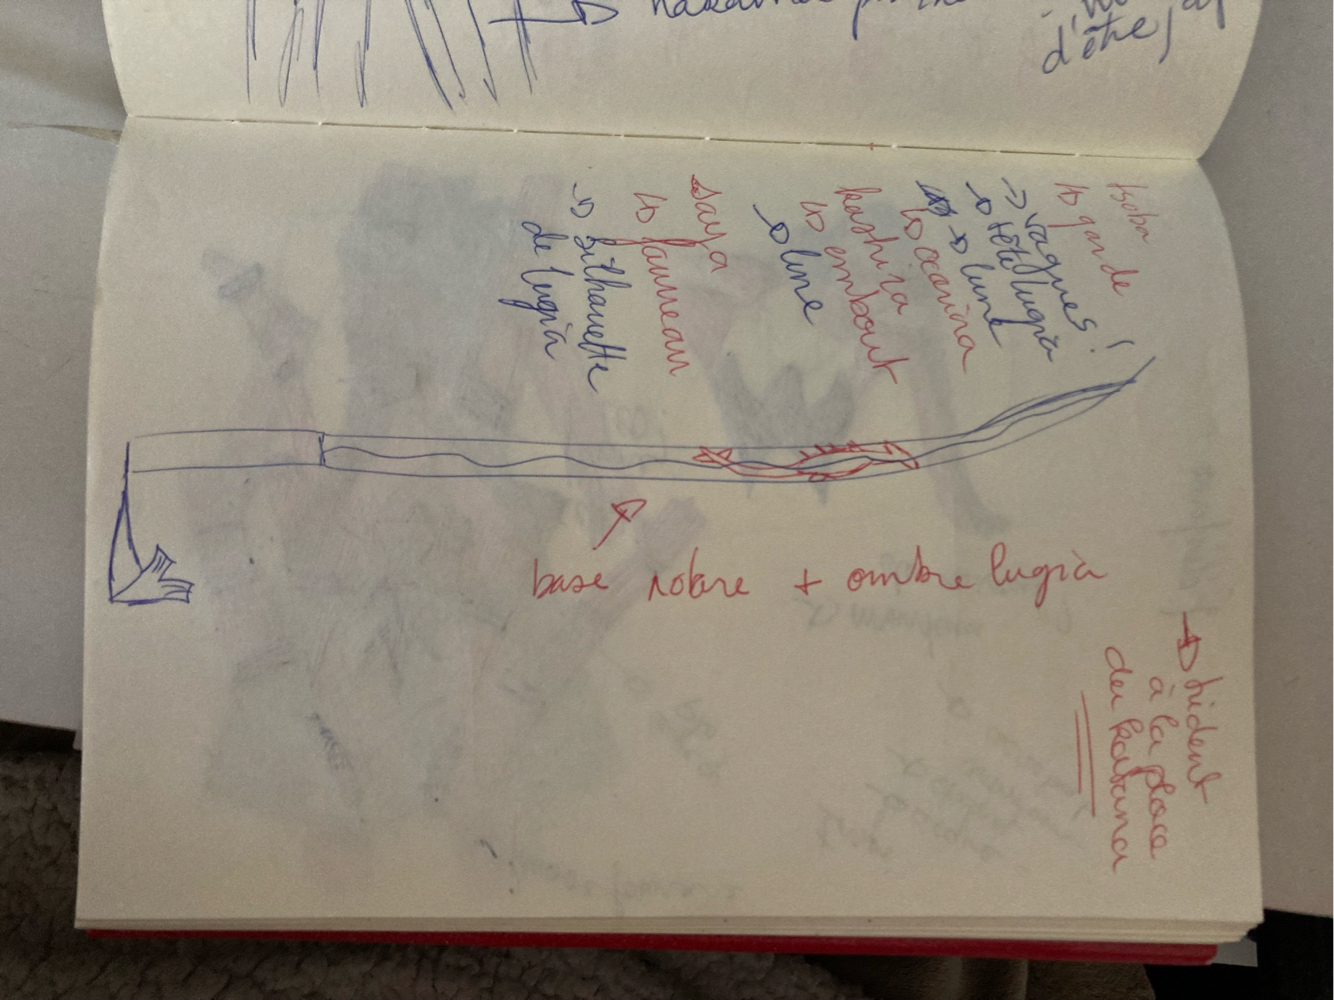 d'être,
tsoba
↳ garde
→ vagues !
→ tête lugia
→ lune
↳ ocarina
kashira
↳ embout
→ lune
saya
↳ fourreau
→ silhouette
de lugia
base + ombre lugia
→ trident
à la place
du katana